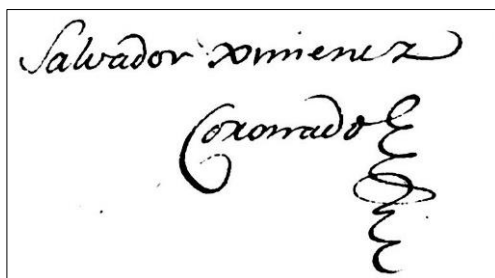 Salvador Ximenez
Coronado